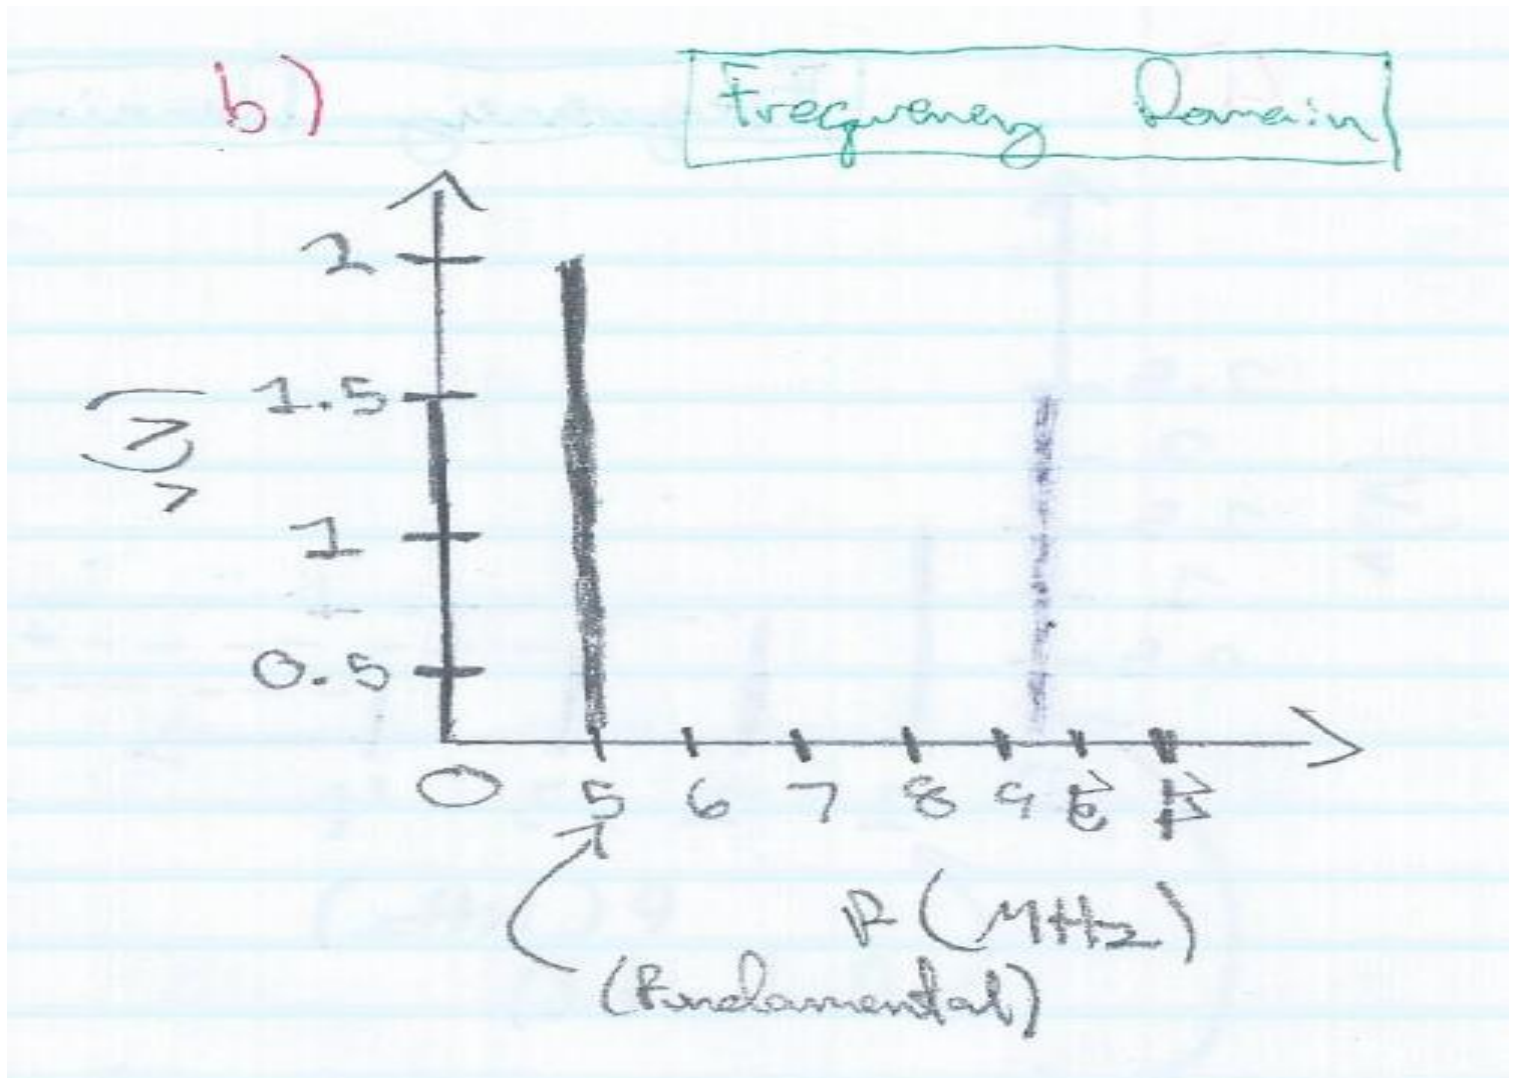 b)
Frequency Domain
2
1.5
V (V)
1
0.5
0 5 6 7 8 9
F (MHz)
(Fundamental)